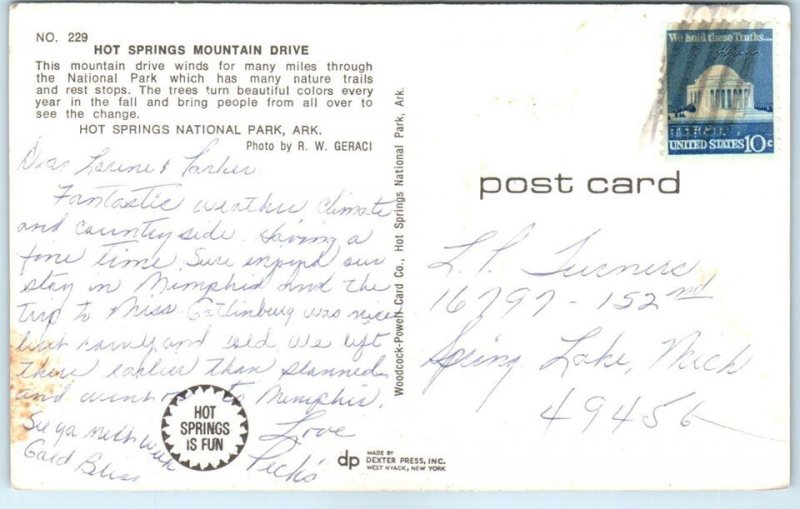 NO. 229
HOT SPRINGS MOUNTAIN DRIVE
This mountain drive winds for many miles through
the National Park which has many nature trails
and rest stops. The trees turn beautiful colors every
year in the fall and bring people from all over to
see the change.
HOT SPRINGS NATIONAL PARK, ARK.
Photo by R. W. GERACI
Dear Lorene & Parker
Fantastic weather climate
and countryside. Having a
fine time. Sure enjoyed our
stay in Memphis and the
trip to Miss. Gatlinburg was nice
but rainy and cold we left
there earlier than planned
and went to Memphis.
See ya next week
God Bless
Love
Peck's
HOT
SPRINGS
IS FUN
Woodcock-Powell Card Co., Hot Springs National Park, Ark.
dp
MADE BY
DEXTER PRESS, INC.
WEST NYACK, NEW YORK
We hold these Truths...
UNITED STATES 10c
post card
L.P. Turners
16797-152nd
Spring Lake, Mich
49456